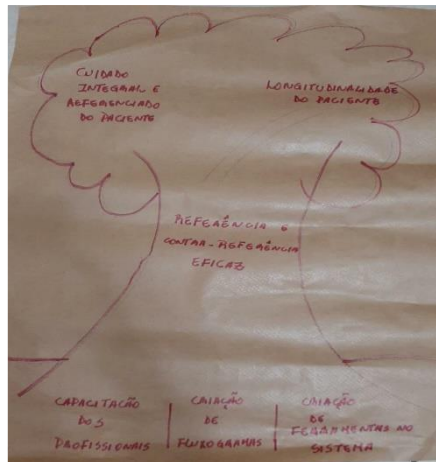 CUIDADO
INTEGRAL E
REFERENCIADO
DO PACIENTE
LONGITUDINALIDADE
DO PACIENTE
REFERÊNCIA E
CONTRA-REFERÊNCIA
EFICAZ
CAPACITAÇÃO
DOS
PROFISSIONAIS
CRIAÇÃO
DE
FLUXOGRAMAS
CRIAÇÃO
DE
FERRAMENTAS NO
SISTEMA